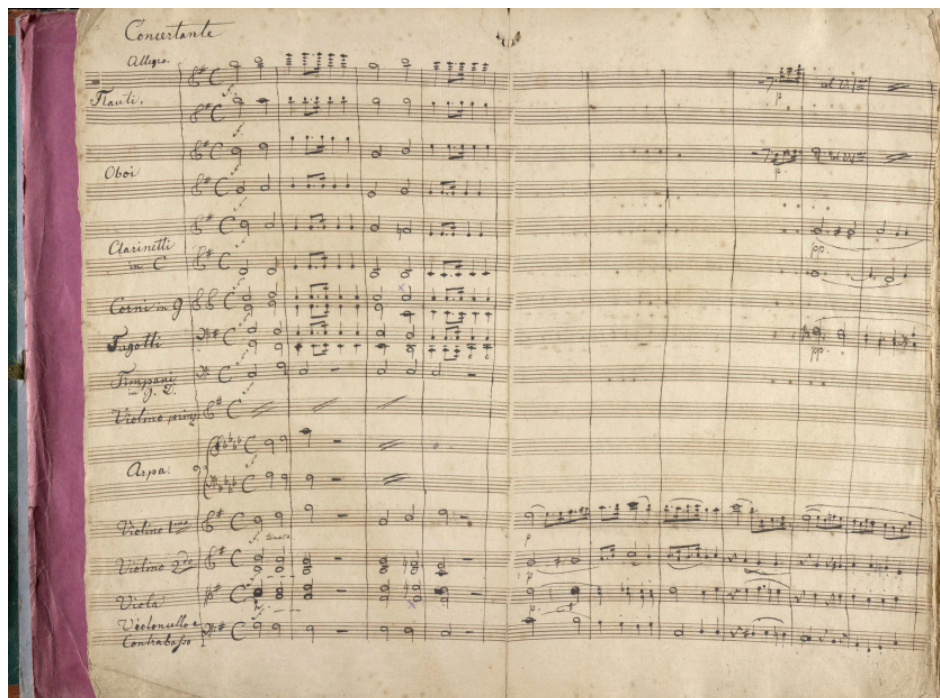 Concertante
Allegro.
Flauti.
Oboi
Clarinetti
in C
Corni in g
Fagotti
Timpani
in g. D.
Violino princ.
Arpa.
Violino 1mo
Violino 2do
Viola
Violoncello e
Contrabasso
f. tenuto
p
pp.